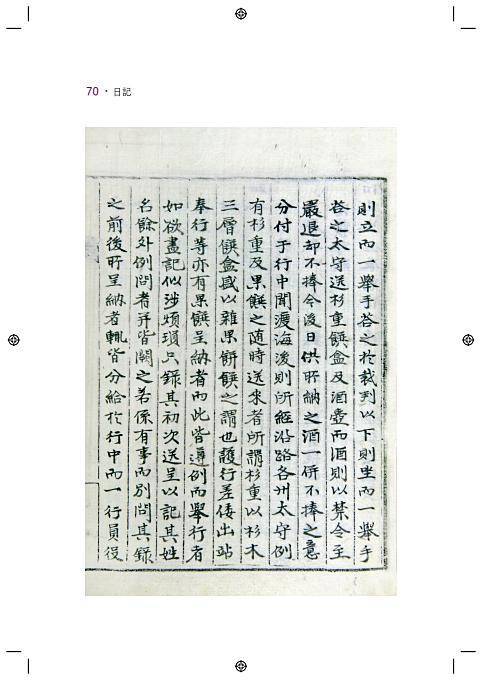 70 · 日記
則立而一擧手答之於裁到以下則坐而一擧手
答之太守送杉重饌盒及酒壺而酒則以禁令至
嚴退却不捧今後日供所納之酒一併不捧之意
分付于行中聞渡海後則所經沿路各州太守例
有杉重及果饌之随時送來者所謂杉重以杉木
三層饌盒盛以雜果餠饌之謂也護行差倭出站
奉行等亦有果饌呈納者而此皆遵例而擧行者
如欲盡記似涉煩瑣只錄其初次送呈以記其姓
名餘外例問者幷皆闕之若係有事而別問其錄
之前後所呈納者輒皆分給於行中而一行員役